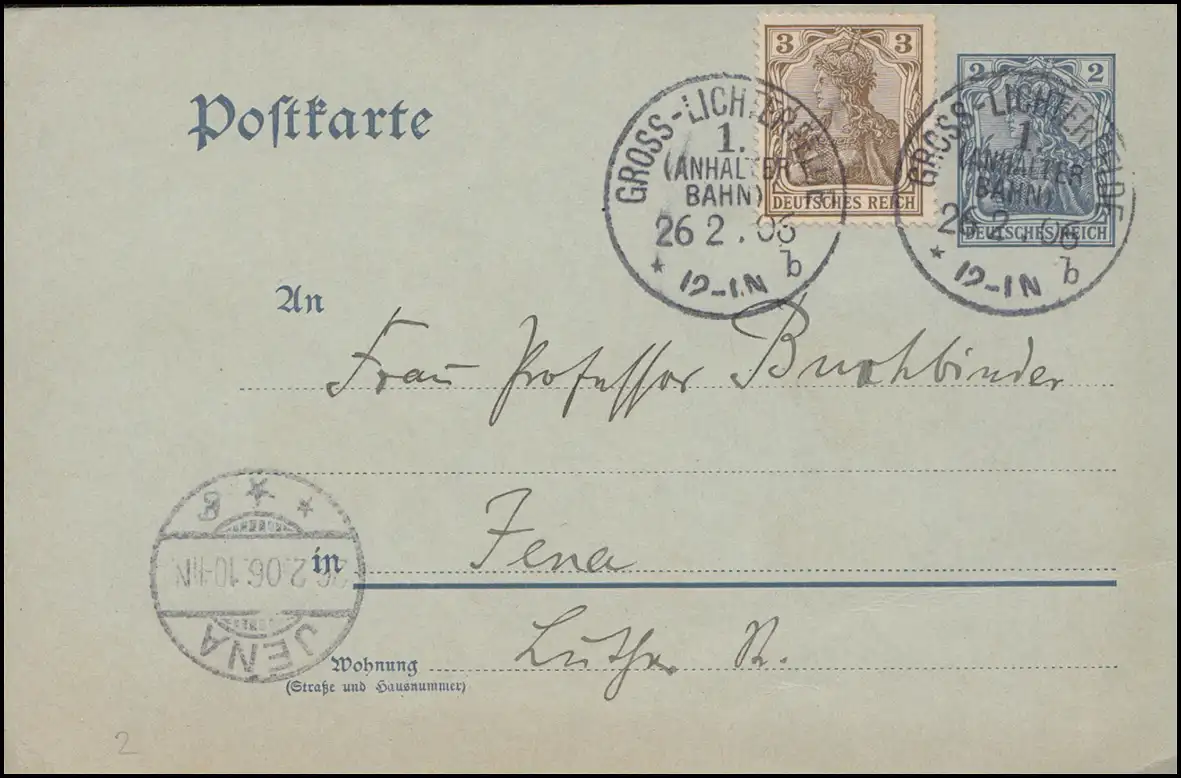 3 3
DEUTSCHES REICH
2 2
DEUTSCHES REICH
Poſtkarte
GROSS-LICHTERFELDE
1.
(ANHALTER
BAHN)
26 2.06
* 12-1N b
GROSS-LICHTERFELDE
1.
(ANHALTER
BAHN)
26 2.06
* 12-1N b
An
Frau Professor Buchbinder
in Jena
JENA
26.2.06.10-11N
Wohnung Luther St.
(Straße und Hausnummer)
2